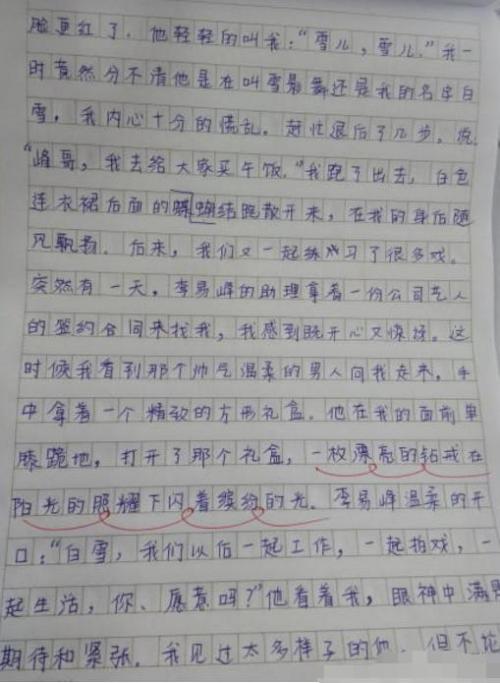 脸更红了．他轻轻的叫我："雪儿，雪儿."我一
时竟然分不清他是在叫雪景舞还是我的名字白
雪，我内心十分的慌乱．赶忙退后了几步，说，
"峰哥，我去给大家买午饭．"我跑了出去，白色
连衣裙后面的蝴蝶结跑散开来，在我的身后随
风飘扬．后来，我们又一起练习了很多戏。
突然有一天，李易峰的助理拿着一份公司艺人
的签约合同来找我，我感到既开心又惊讶。这
时候我看到那个帅气温柔的男人向我走来，手
中拿着一个精致的方形礼盒．他在我的面前单
膝跪地，打开了那个礼盒，一枚漂亮的钻戒在
阳光的照耀下闪着缤纷的光．李易峰温柔的开
口："白雪，我们以后一起工作，一起拍戏，一
起生活，你、愿意吗？"他看着我，眼神中满是
期待和紧张．我见过太多样子的他．但不论